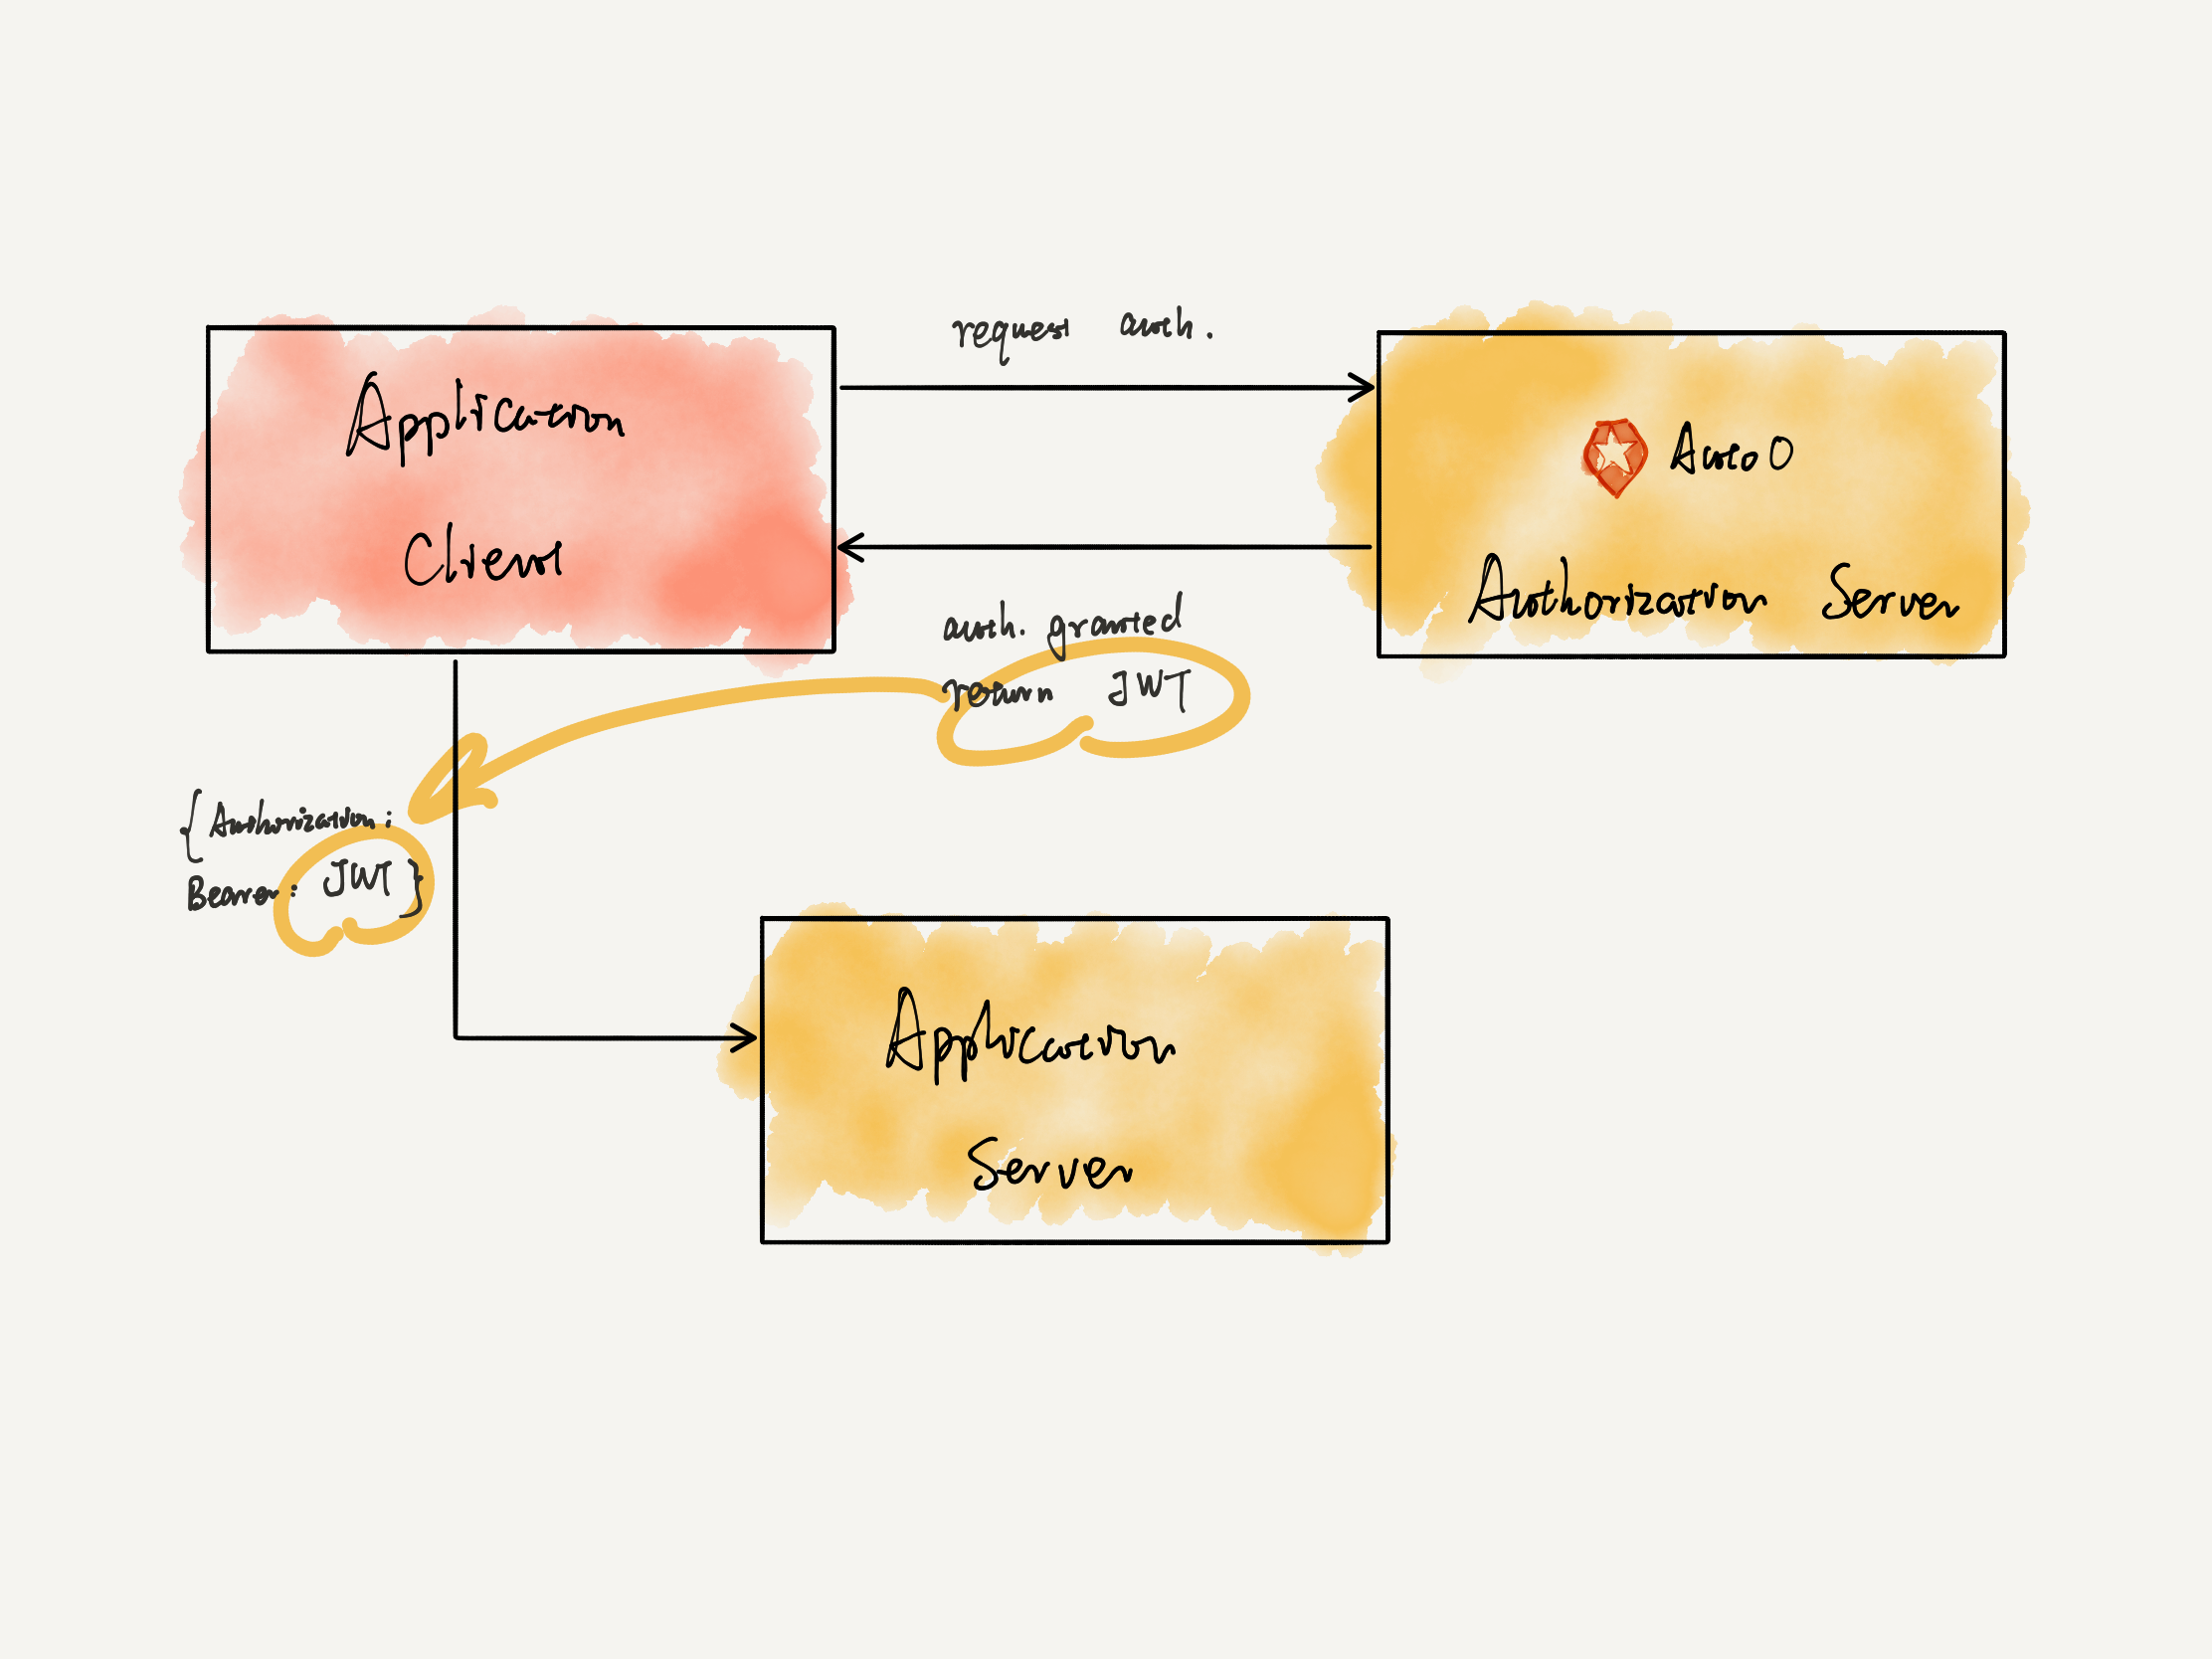 Application
Client
request auth.
Auto0
Authorization Server
auth. granted
return JWT
{Authorization:
Bearer: JWT}
Application
Server